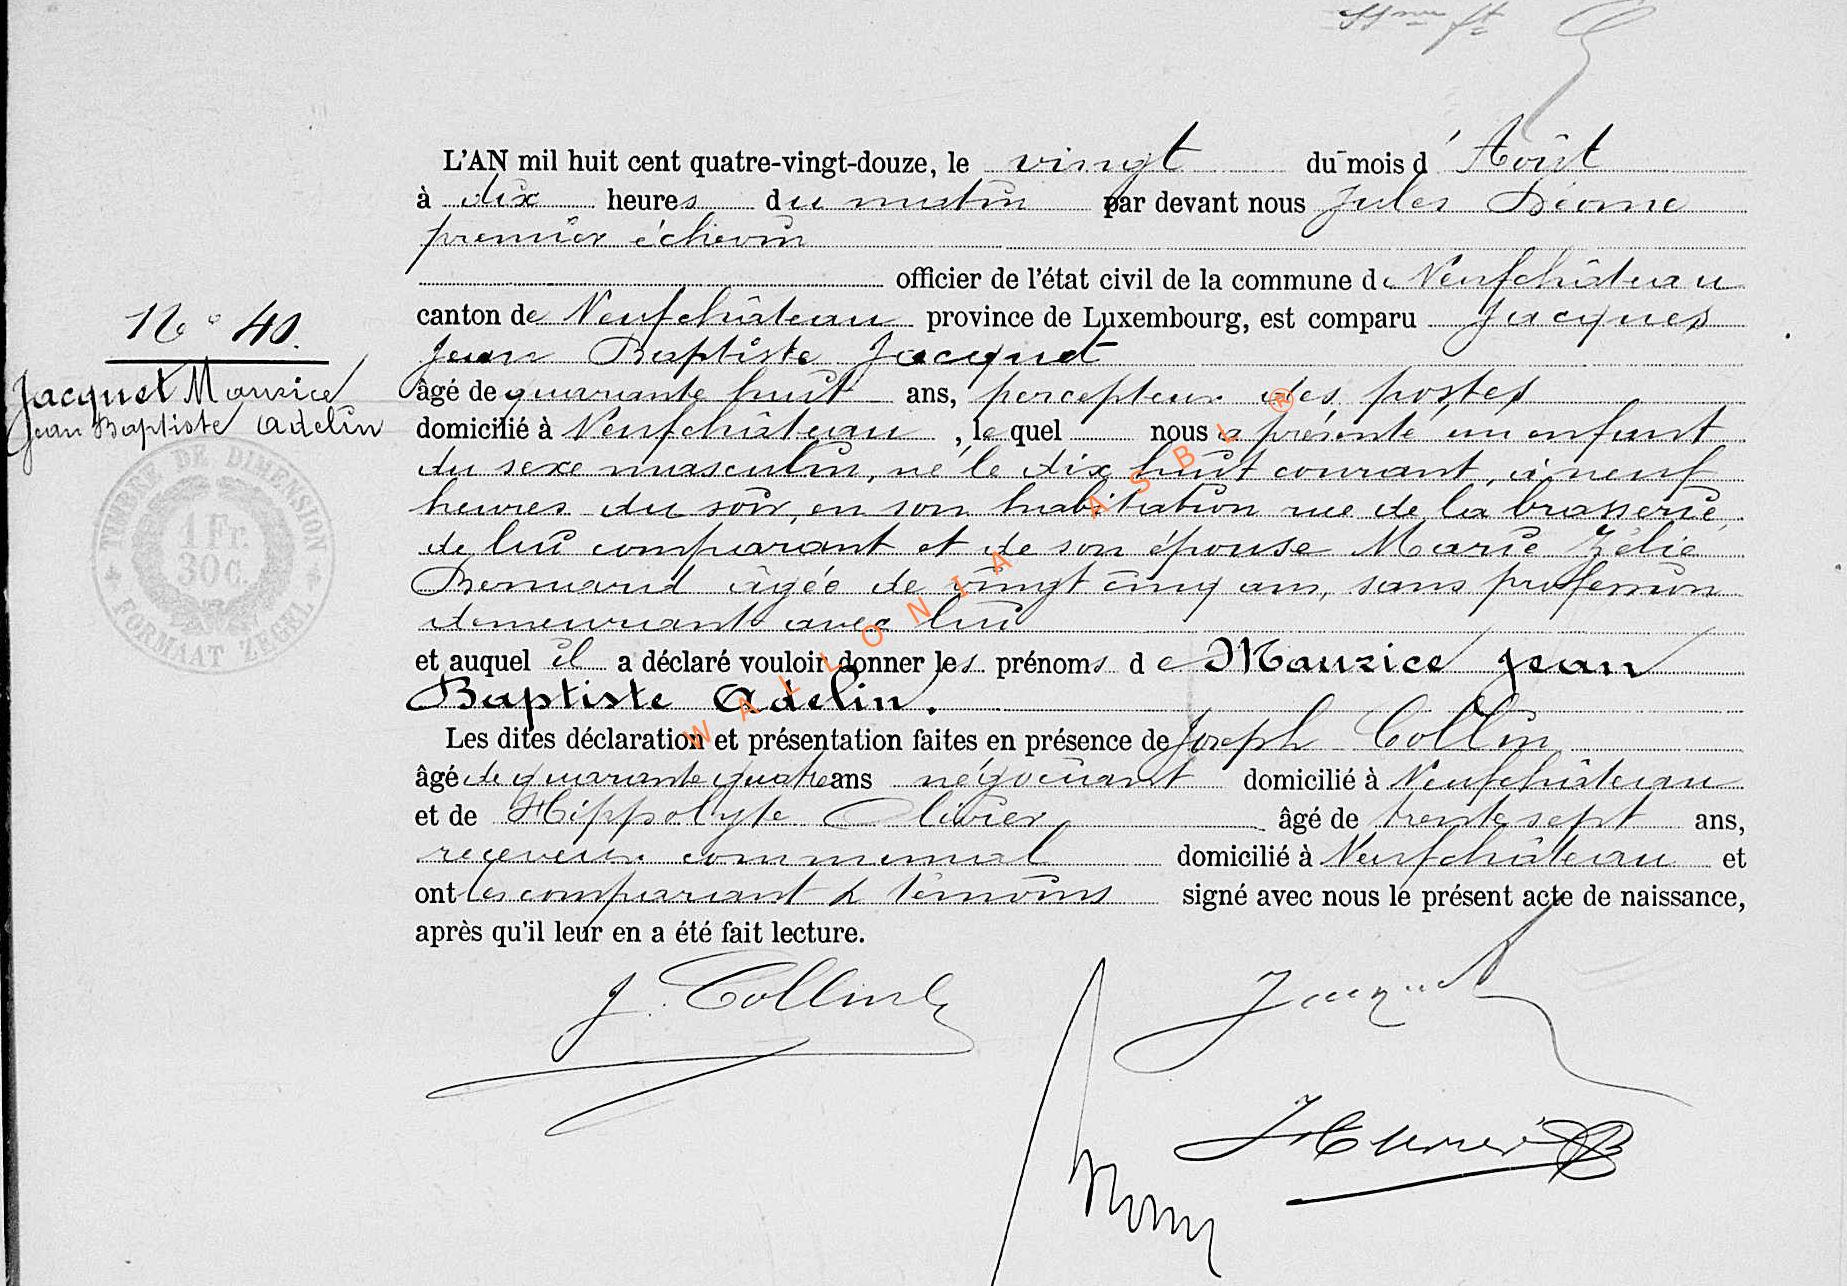 L'AN mil huit cent quatre-vingt-douze, le vingt du mois d'Août
à dix heures du matin par devant nous Jules Dione
premier échevin
officier de l'état civil de la commune de Neufchâteau
canton de Neufchâteau province de Luxembourg, est comparu Jacques
Jean Baptiste Jacquet
âgé de quarante huit ans, percepteur des postes
domicilié à Neufchâteau, lequel nous a présenté un enfant
du sexe masculin, né le dix huit courant, à neuf
heures du soir, en son habitation rue de la brasserie,
de lui comparant et de son épouse Marie Zélie
âgée de vingt cinq ans, sans profession
demeurant avec lui
et auquel il a déclaré vouloir donner les prénoms de Maurice Jean
Baptiste Adelin.
Les dites déclaration et présentation faites en présence de Joseph Collin
âgé de quarante quatre ans négociant domicilié à Neufchâteau
et de Hippolyte Olivier âgé de trente sept ans,
receveur communal domicilié à Neufchâteau et
ont les comparant & témoins signé avec nous le présent acte de naissance,
après qu'il leur en a été fait lecture.
N° 40.
Jacquet Maurice
Jean Baptiste Adelin
TIMBRE DE DIMENSION
1 Fr.
30 C.
FORMAAT ZEGEL
WALLONIA ASBL ®
J. Collin
Jacquet